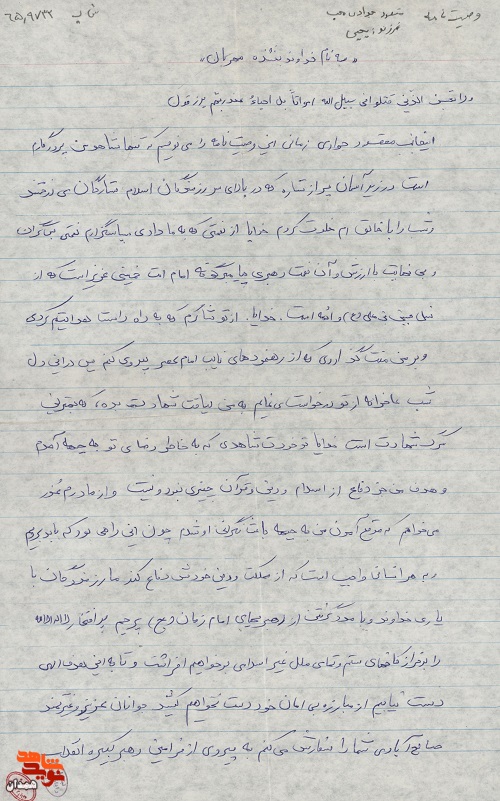 وصیت نامه مقصود جوادی
فرزند: یحیی
« به نام خداوند بخشنده مهربان »
ولا تحسبن الذین قتلوا فی سبیل الله امواتاً بل احیاءٌ عند ربهم یرزقون
اینجانب مقصود جوادی زمانی این وصیت نامه را می نویسم که تنها شاهد من پروردگارم
است در زیر آسمان پر از ستاره که در بالای سر رزمندگان اسلام ستارگان می درخشند
و شب را با خالق ام خلوت کردم خدایا از نعمتی که به ما دادی سپاسگزارم نعمتی بیکران
و بی نهایت با ارزش و آن نعمت رهبری پیامبرگونه امام امت خمینی عزیز است که از
نسل علی (ع) و ائمه است. خدایا. از تو تشکرم که به راه راست هدایتم کردی
و بر من منت گذاردی که از رهنمودهای نایب امام عصر پیروی کنم من در این دل
شب عاجزانه از تو درخواست می نمایم به من لیاقت شهادت بده، که بهترین
مرگ شهادت است خدایا تو خودت شاهدی که به خاطر رضای تو به جبهه آمدم
و هدف من جز دفاع از اسلام و دین و قرآن چیزی نبود و نیست و از مادرم
می خواهم که موقع آمدن من به جبهه باعث نگرانی او شدم چون این راهی بود که باید بریم
و به هر انسان واجب است که از مملکت و دین خودش دفاع کند ما رزمندگان با
یاری خداوند و با مدد گرفتن از رهبریهای امام زمان (عج) پرچم پر افتخار لا اله الا الله
را بر فراز کاخهای ستم و تمامی ملل غیر اسلامی برخواهیم افراشت و تا به این هدف الهی
دست نیابیم از مبارزه بی امان خود دست نخواهیم کشید جوانان عزیز و غیرتمند
صالح آبادی شما را سفارش می کنم به پیروی از فرامین رهبر کبیر انقلاب
نوید شاهد
همدان